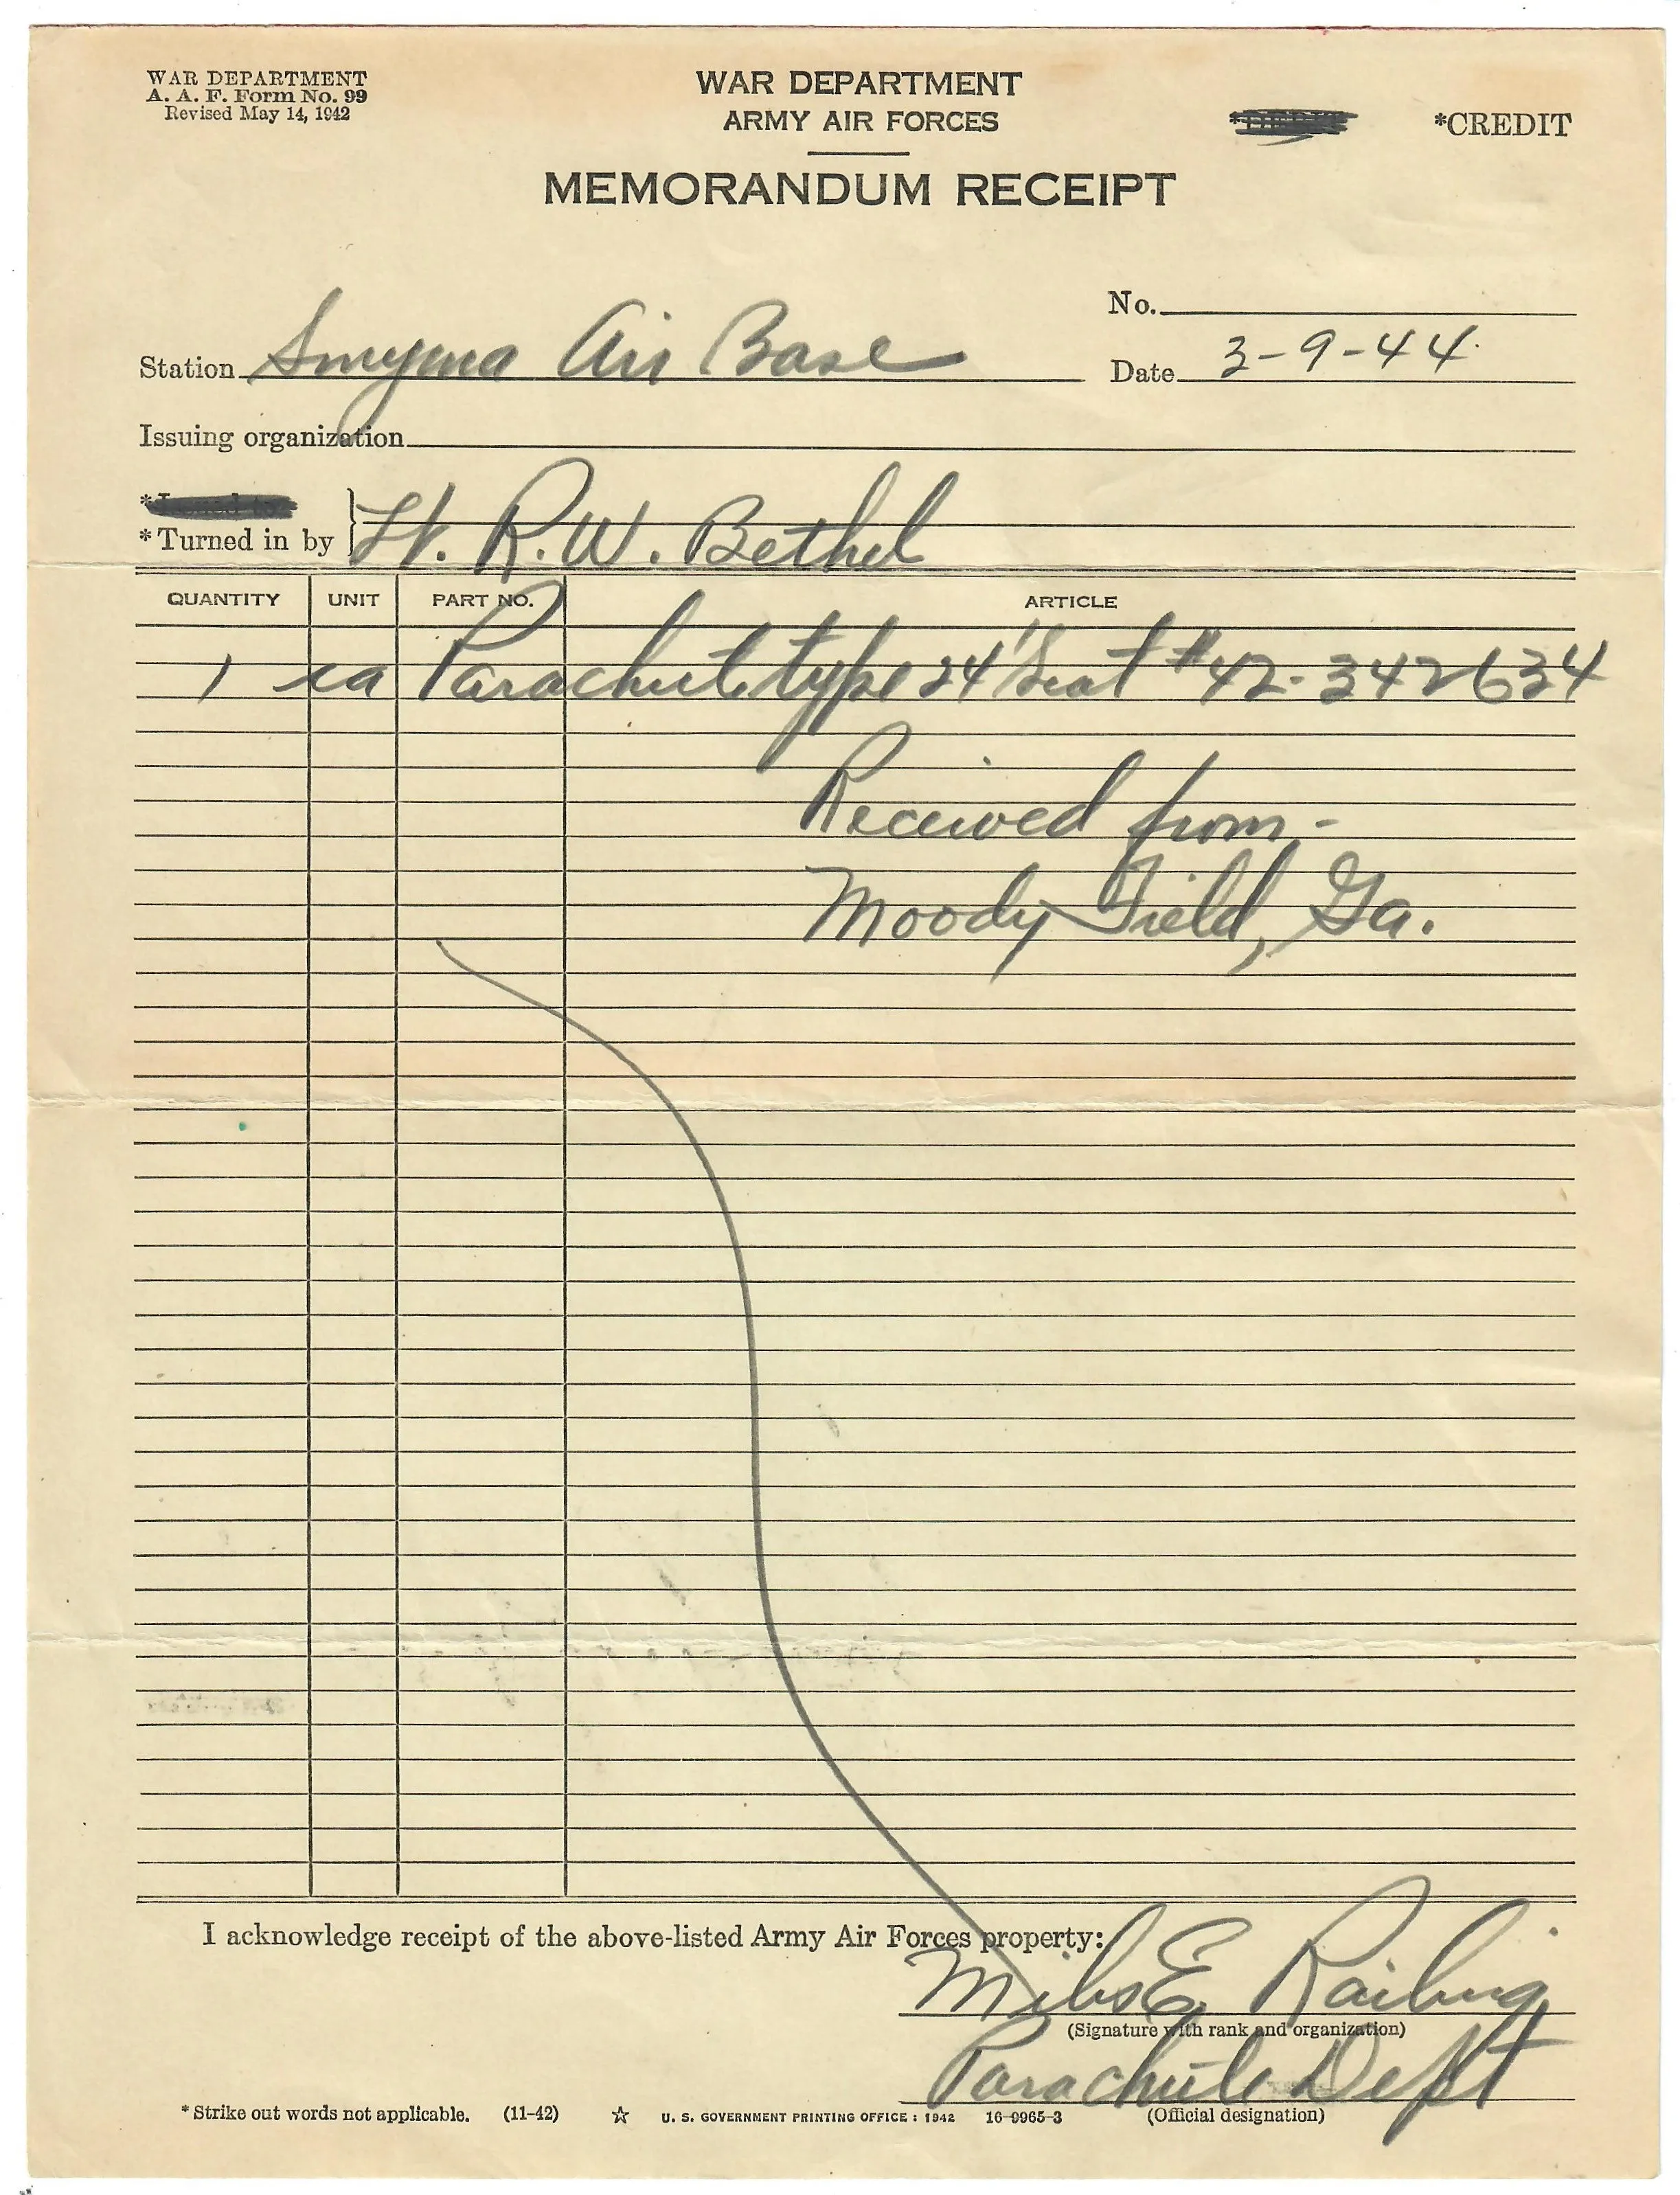 WAR DEPARTMENT
A. A. F. Form No. 99
Revised May 14, 1942
WAR DEPARTMENT
ARMY AIR FORCES
*CREDIT
MEMORANDUM RECEIPT
No.
Station Smyrna Air Base
Date 3-9-44
Issuing organization
*Turned in by Lt. R. W. Bethel
QUANTITY UNIT PART NO. ARTICLE
1 ea Parachute type 24' Seat # 42-342634
Received from-
Moody Field, Ga.
I acknowledge receipt of the above-listed Army Air Forces property:
E.
(Signature with rank and organization)
Parachute Dept
*Strike out words not applicable. (11-42) ☆ U. S. GOVERNMENT PRINTING OFFICE : 1942 16-9965-3 (Official designation)